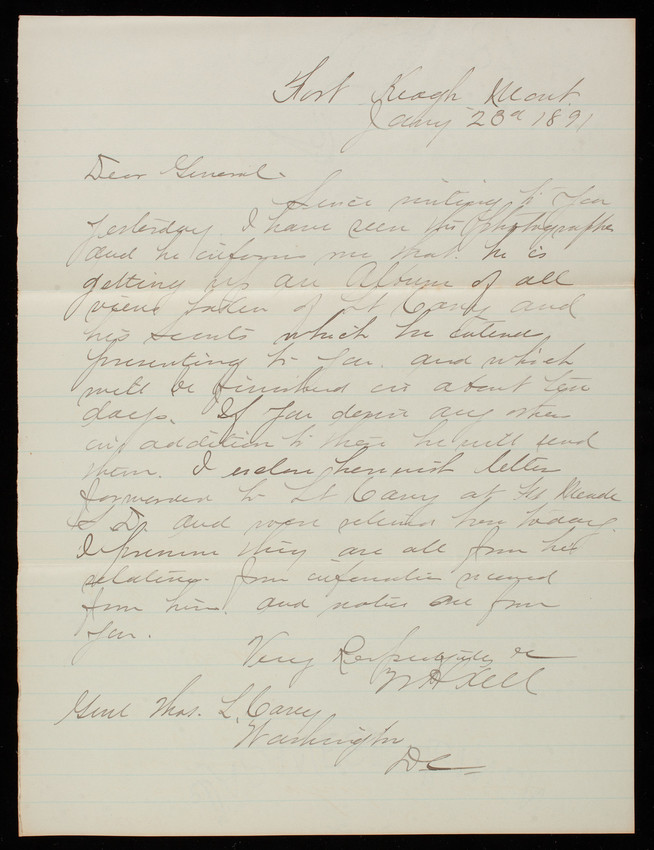 Fort Keogh Mont.
Jany 23d 1891
Dear General.
Since writing to you
yesterday. I have seen the photographer
and he informs me that he is
getting up an Album of all
views taken of Lt Casey and
his scouts which he intends
presenting to you. and which
will be finished in about ten
days. If you desire any others
in addition to these he will send
them. I enclose herewith letters
forwarded to Lt Casey at Ft Meade
S D. and were returned here today.
I presume they are all from his
relatives. from information received
from him. and notice one from
you.
Very Respectfully &c
W H Kell
Genl Thos. L. Casey
Washington
DC